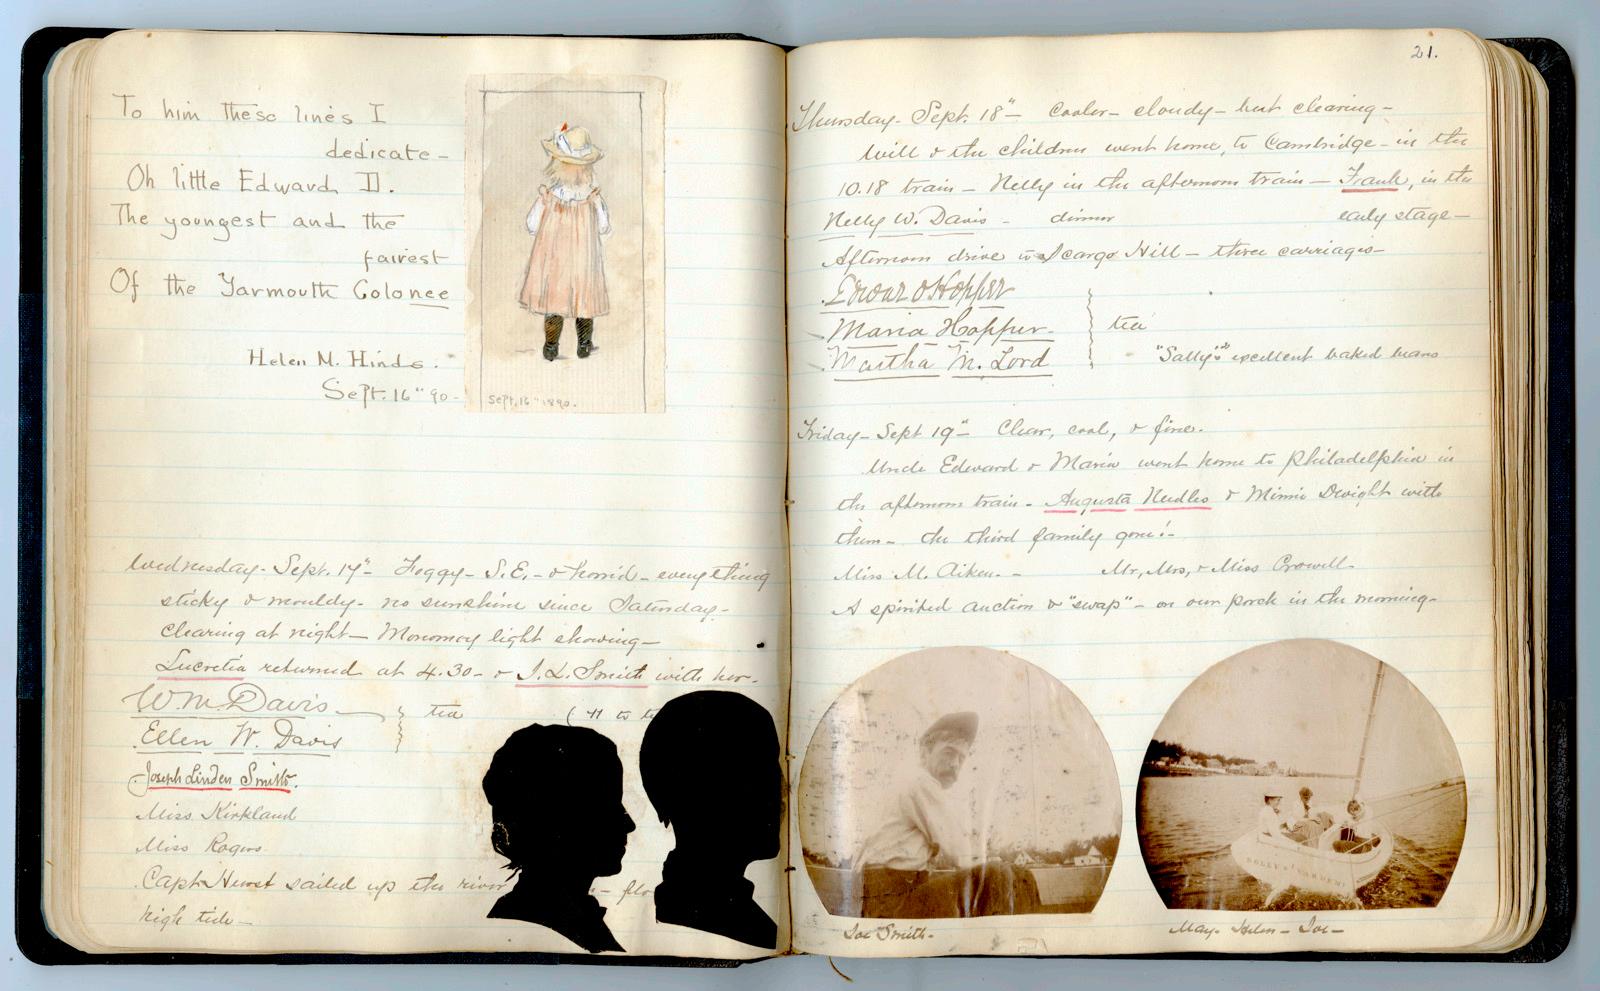 To him these lines I
dedicate-
Oh little Edward II.
The youngest and the
fairest
Of the Yarmouth Colonee
Helen M. Hinds.
Sept. 16" 90-
Sept. 16" 1890.
Wednesday- Sept. 17"- Foggy- S.E.- & horrid- everything
sticky & mouldy- no sunshine since Saturday-
clearing at night- Monomoy light showing-
Lucretia returned at 4.30- & J. L. Smith with her-
Wm Davis- tea
Ellen W. Davis
Joseph Linden Smith.
Miss Kirkland
Miss Rogers
Capt. Hurst sailed up the river
high tide-
21.
Thursday- Sept. 18"- Cooler- cloudy- but clearing-
Will & the children went home, to Cambridge- in the
10.18 train- Nelly in the afternoon train- Frank, in the
Nelly W. Davis- dinner early stage-
Afternoon drive to Scargo Hill- three carriages-
Edward Hopper
Maria Hopper- tea
Martha M. Lord "Sally's" excellent baked beans
Friday- Sept 19"- Clear, cool, & fine.
Uncle Edward & Maria went home to Philadelphia in
the afternoon train- Augusta Needles & Minnie Dwight with
them- the third family gone!-
Miss M. Aiken.- Mr, Mrs, & Miss Crowell-
A spirited auction & "swap"- on our porch in the morning-
Joe Smith-
May- Helen- Joe-